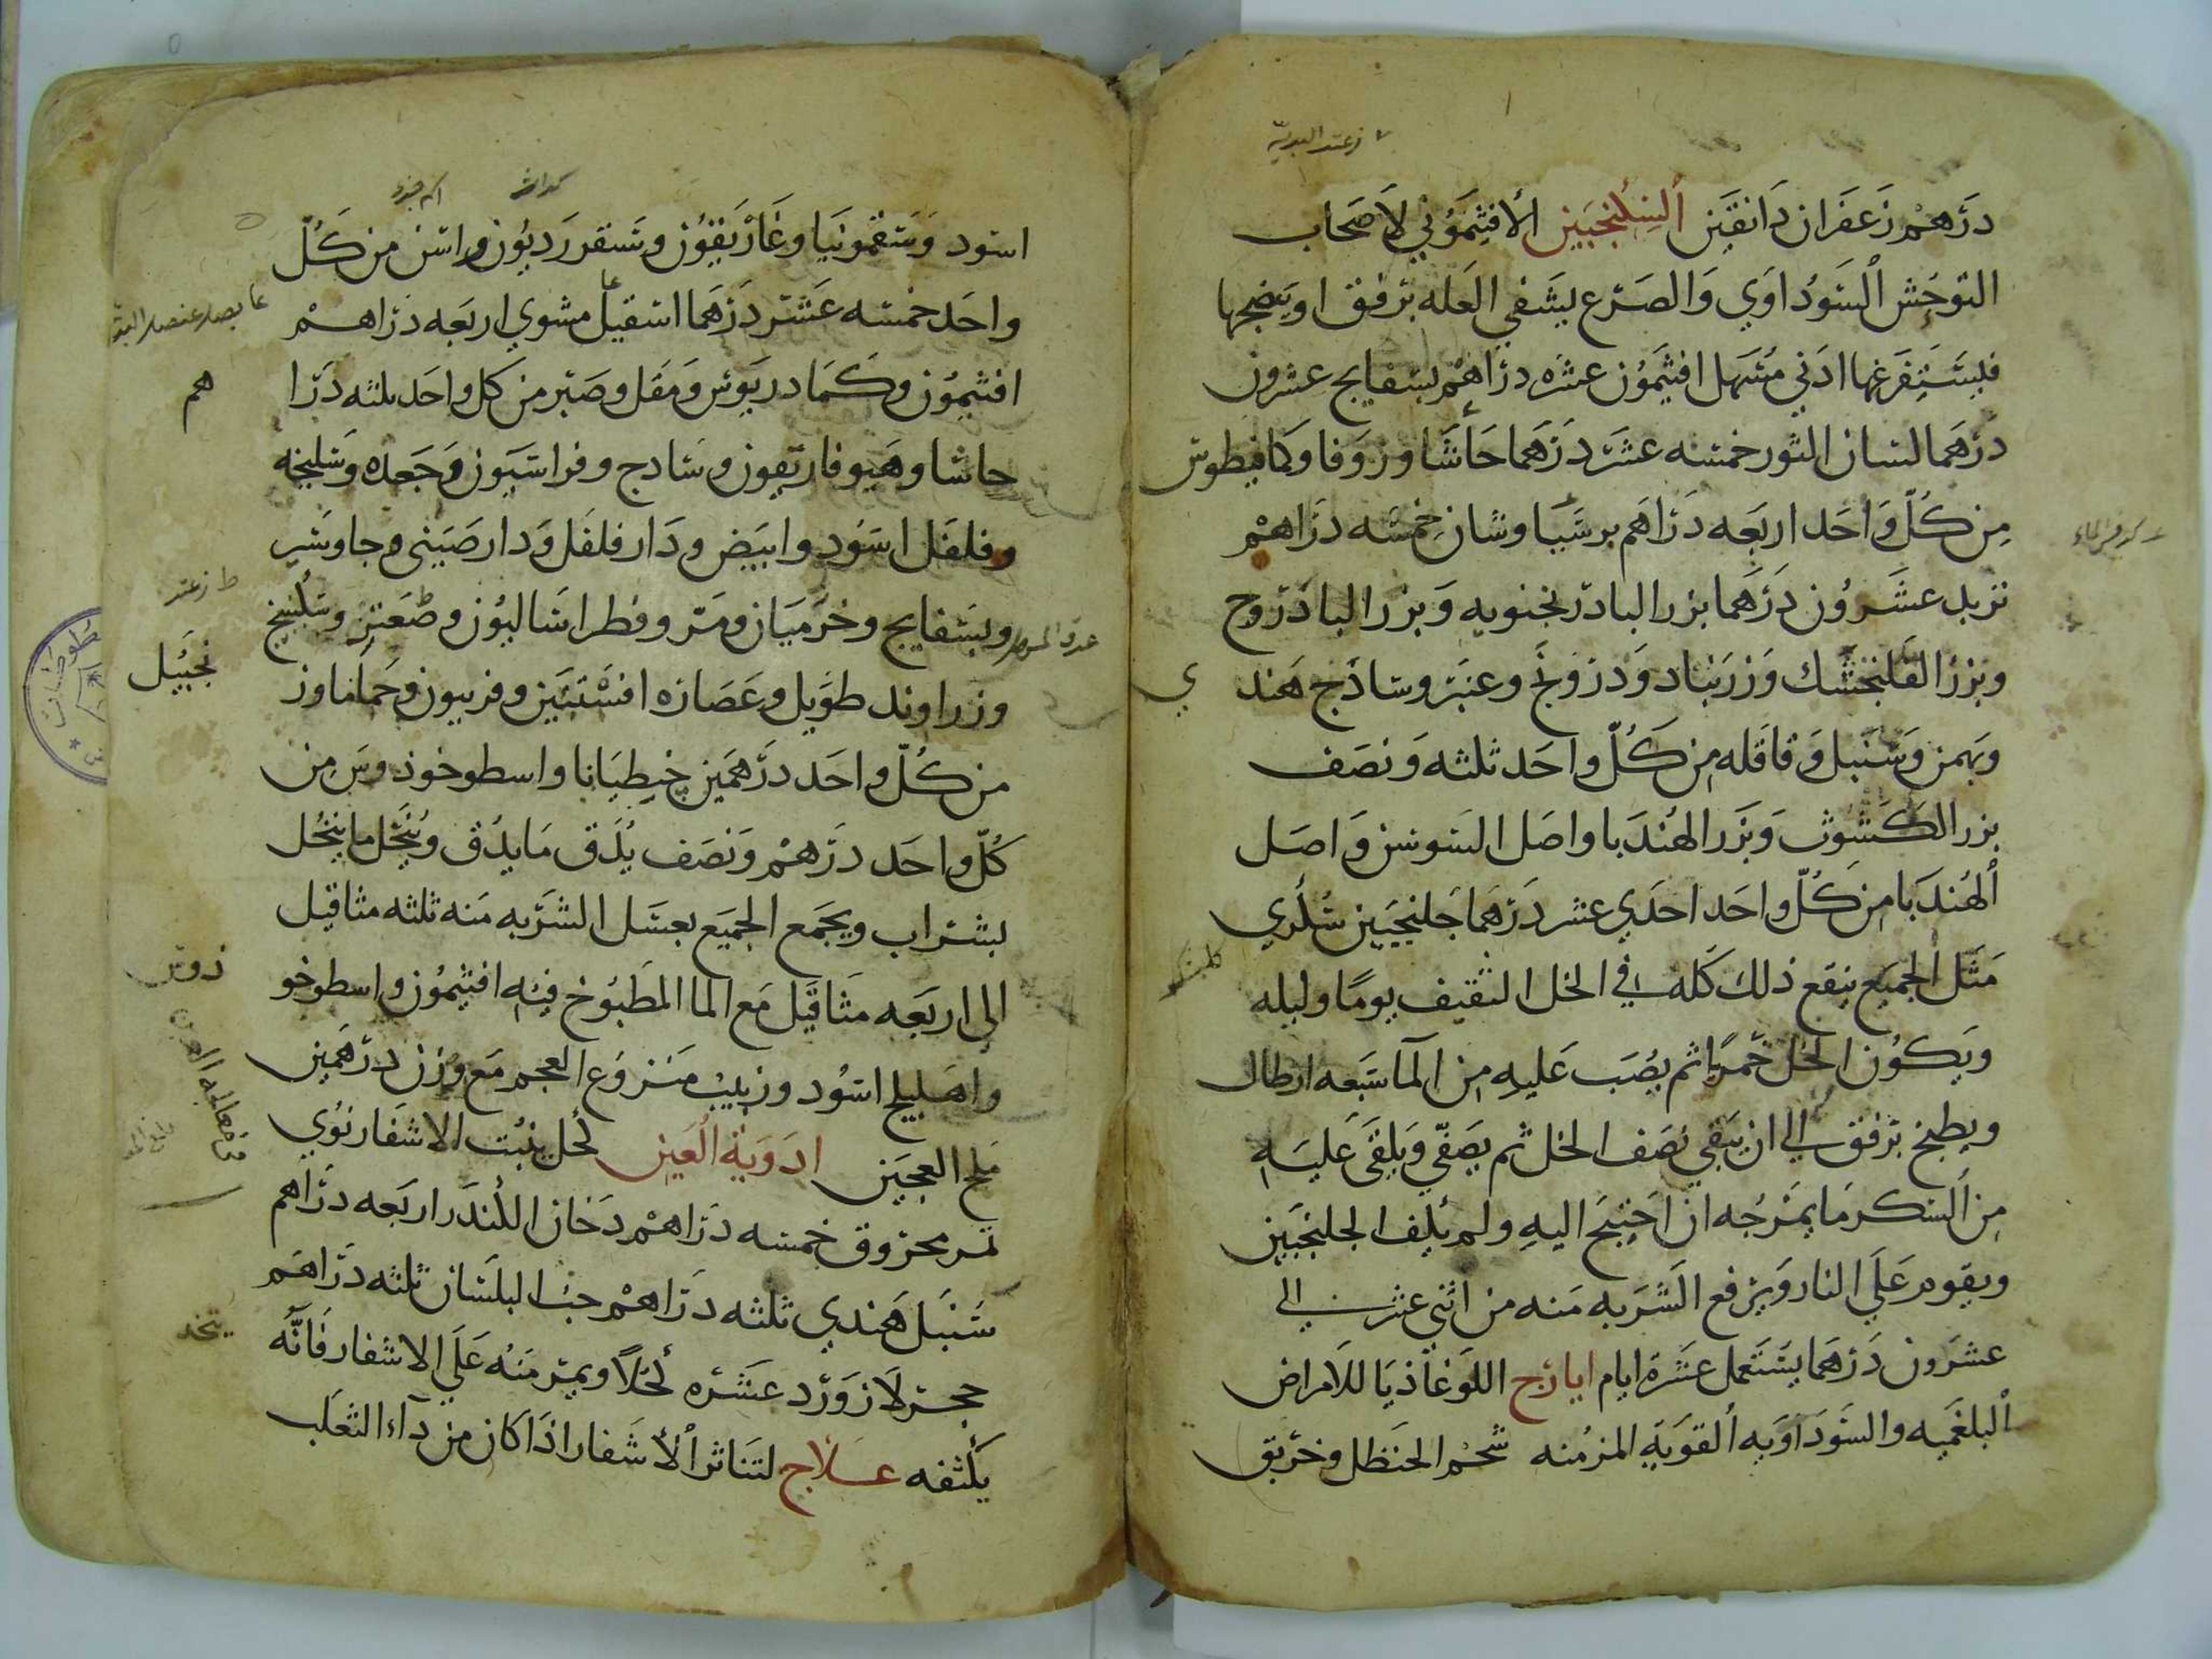 درهم زعفران دانقين السكنجبين الافثيموني لاصحاب
التوحش السوداوي والصرع يشفي العله برفق او ينضجها
فيستفرغها ادني مسهل افثيمون عشره دراهم بسفايج عشرون
درهما لسان الثور خمسه عشر درهما حاشا وزوفا وكمافيطوس
من كل واحد اربعه دراهم برسياوشان خمسه دراهم
تربد عشرون درهما بزر البادرنجنويه وبزر الباذروج
وبزر الفلنجشك وزرنباد ودرونج وعنبر وساذج هند
ي
وبهمن وسنبل وقاقله من كل واحد ثلثه ونصف
بزر الكشوث وبزر الهندبا واصل السوسن واصل
الهندبا من كل واحد احدي عشر درهما جلنجبين سكري
مثل الجميع ينقع ذلك كله في الخل الثقيف يوما وليله
ويكون الخل خمريا ثم يصب عليه من الما سبعه ارطال
ويطبخ برفق الي ان يبقي نصف الخل ثم يصفي ويلقي عليه
من السكر ما يمزجه ان احتيج اليه ولم يكف الجلنجبين
ويقوم علي النار ويرفع الشربه منه من اثني عشر الي
عشرون درهما يستعمل عشرة ايام ايارج اللوغاذيا للامراض
البلغميه والسوداويه القويه المزمنه شحم الحنظل وخربق
اسود وسقمونيا وغاريقون وسقورديون واشق من كل
واحد خمسه عشر درهما اسقيل مشوي اربعه دراهم
عا بصل عنصل
افثيمون وكمادريوس ومقل وصبر من كل واحد ثلثه درا
هم
حاشا وهيوفاريقون وسادج وفراسيون وجعده وسليخه
وفلفل اسود وابيض ودار فلفل ودار صيني وجاوشير
وبسفايج وخرميان ومر وفطراساليون وصعتر وسكبينج
وزراوند طويل وعصاره افسنتين وفربيون وحماما وز
نجبيل
من كل واحد درهمين جنطيانا واسطوخوذوس من
كل واحد درهم ونصف يدق ما يدق وينخل ما ينخل
بشراب ويجمع الجميع بعسل الشربه منه ثلثه مثاقيل
الي اربعه مثاقيل مع الما المطبوخ فيه افثيمون واسطوخو
ذوس
واهليلج اسود وزبيب منزوع العجم مع وزن درهمين
ملح العجين ادوية العين كحل ينبت الاشفار نوي
تمر محروق خمسه دراهم دخان الكندر اربعه دراهم
سنبل هندي ثلثه دراهم حب البلسان ثلثه دراهم
حجر لازورد عشره كحلا ويمر منه علي الاشفار فانه
يتخذ
يكثفه علاج لتناثر الأشفار اذا كان من داء الثعلب